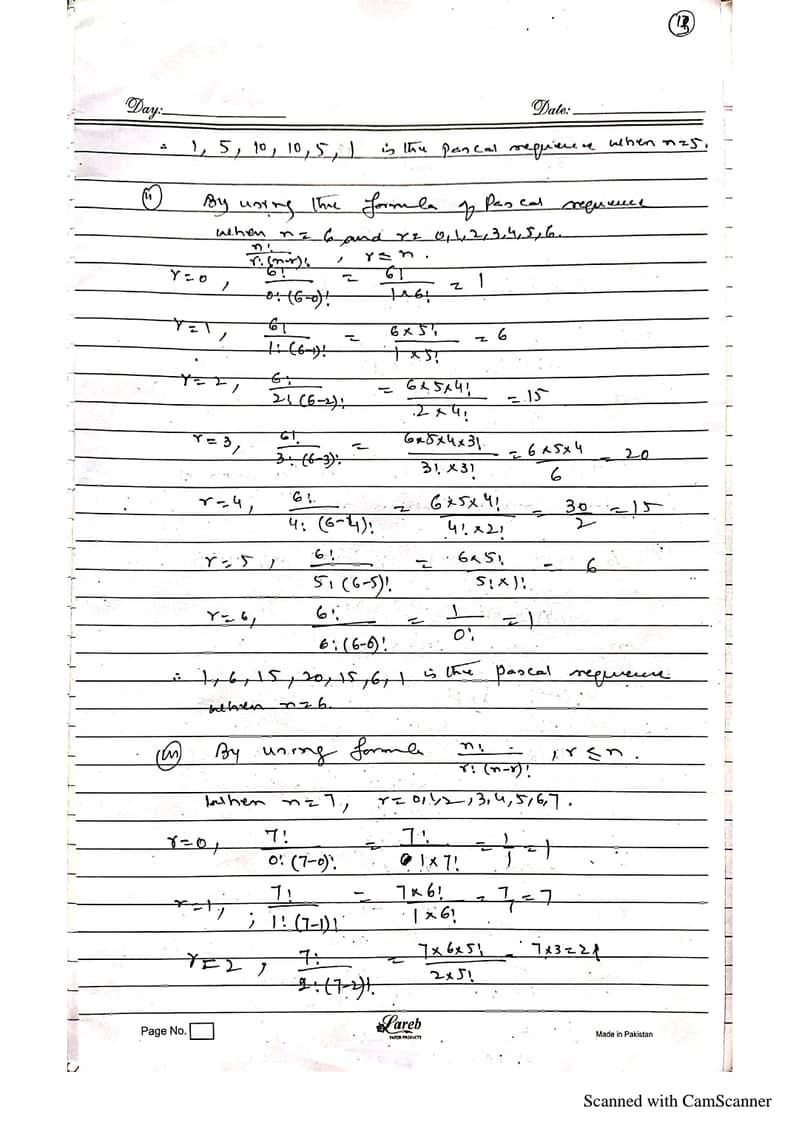 13
Day: Date:
∴ 1, 5, 10, 10, 5, 1 is the pascal sequence when n=5.
(ii) By using the formula of Pascal sequence
when n=6 and r=0,1,2,3,4,5,6.
n!/r!(n-r)! , r≤n.
r=0, 6!/0!(6-0)! = 6!/1×6! = 1
r=1, 6!/1!(6-1)! = 6×5!/1×5! = 6
r=2, 6!/2!(6-2)! = 6×5×4!/2×4! = 15
r=3, 6!/3!(6-3)! = 6×5×4×3!/3!×3! = 6×5×4/6 = 20
r=4, 6!/4!(6-4)! = 6×5×4!/4!×2! = 30/2 = 15
r=5, 6!/5!(6-5)! = 6×5!/5!×1! = 6
r=6, 6!/6!(6-6)! = 1/0! = 1
∴ 1, 6, 15, 20, 15, 6, 1 is the pascal sequence
when n=6.
(iii) By using formula n!/r!(n-r)! , r≤n.
when n=7, r=0,1,2,3,4,5,6,7.
r=0, 7!/0!(7-0)! = 7!/1×7! = 1/1 = 1
r=1, ; 7!/1!(7-1)! = 7×6!/1×6! = 7/1 = 7
r=2, 7!/2!(7-2)! = 7×6×5!/2×5! = 7×3=21
Page No. Lareb PAPER PRODUCTS Made in Pakistan
Scanned with CamScanner